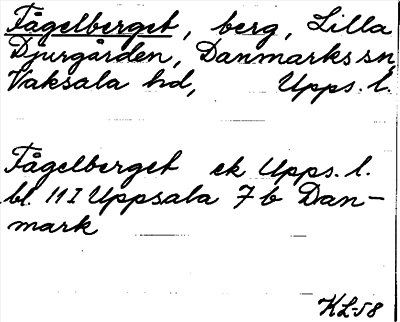 Fågelberget, berg, Lilla
Djurgården, Danmarks sn,
Vaksala hd, Upps. l.
Fågelberget ek Upps. l.
bl. 11 I Uppsala 7 b Dan-
mark
KL-58